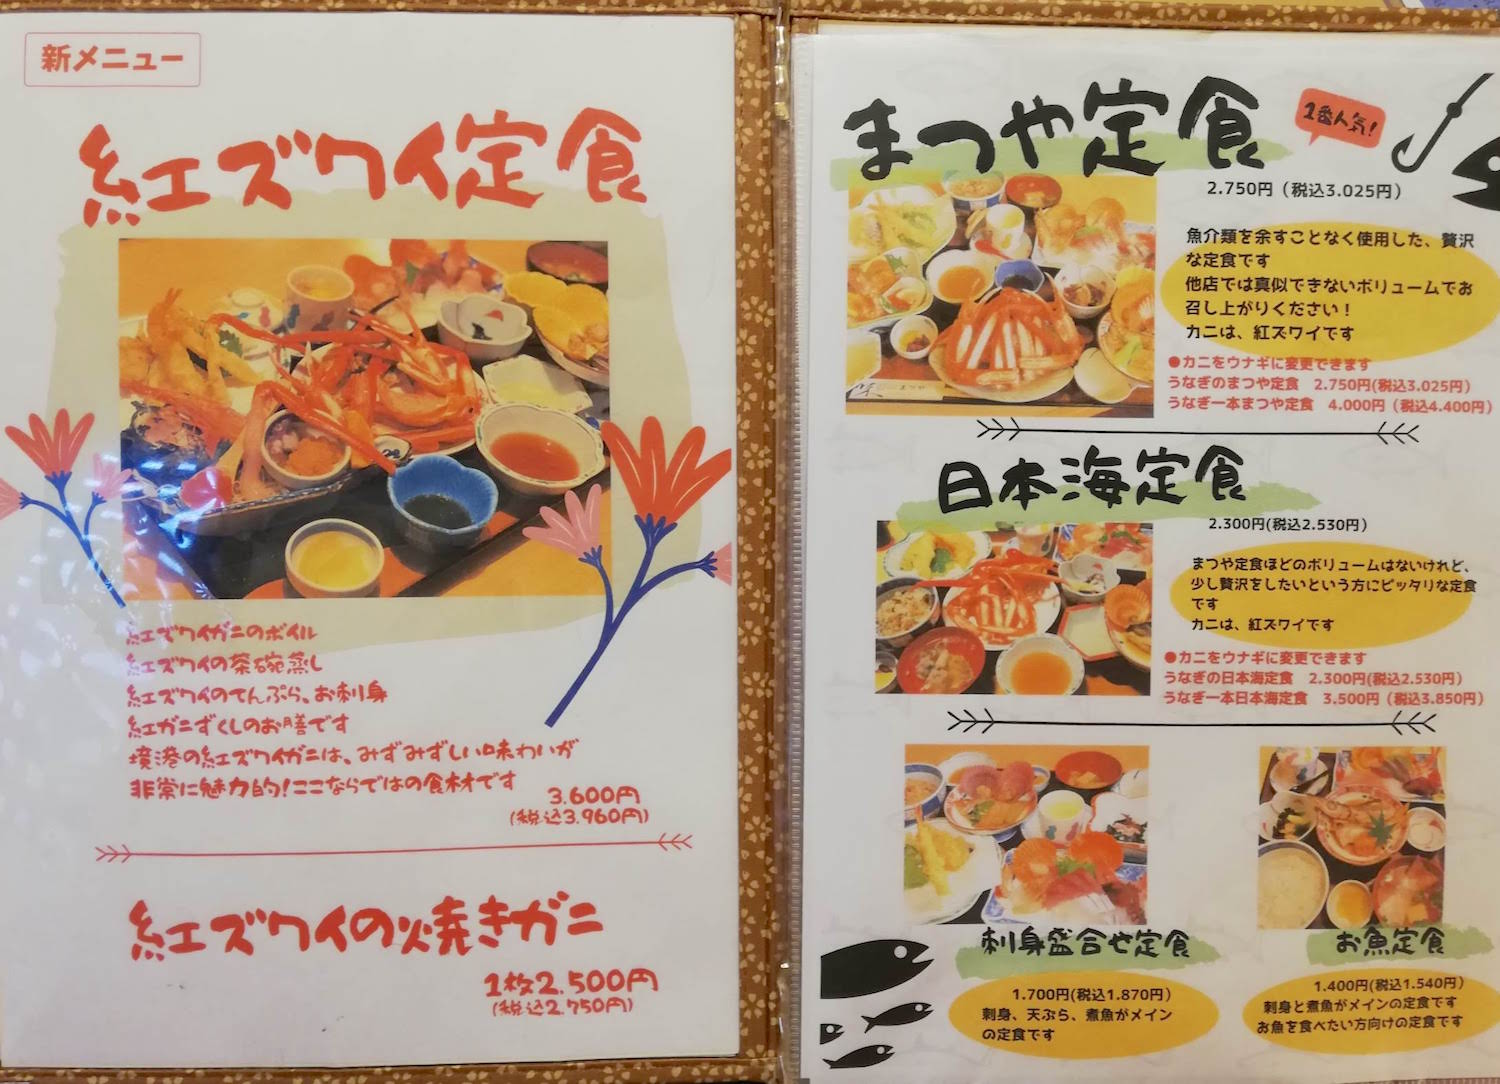 新メニュー
紅ズワイ定食
紅ズワイガニのボイル
紅ズワイの茶碗蒸し
紅ズワイのてんぷら、お刺身
紅ガニずくしのお膳です
境港の紅ズワイガニは、みずみずしい味わいが
非常に魅力的!ここならではの食材です
3.600円
(税込3.960円)
紅ズワイの焼きガニ
1枚2.500円
(税込2.750円)
まつや定食
1番人気!
2.750円(税込3.025円)
魚介類を余すことなく使用した、贅沢
な定食です
他店では真似できないボリュームでお
召し上がりください!
カニは、紅ズワイです
●カニをウナギに変更できます
うなぎのまつや定食 2.750円(税込3.025円)
うなぎ一本まつや定食 4.000円(税込4.400円)
日本海定食
2.300円(税込2.530円)
まつや定食ほどのボリュームはないけれど、
少し贅沢をしたいという方にピッタリな定食
です
カニは、紅ズワイです
●カニをウナギに変更できます
うなぎの日本海定食 2.300円(税込2.530円)
うなぎ一本日本海定食 3.500円(税込3.850円)
刺身盛合せ定食
1.700円(税込1.870円)
刺身、天ぷら、煮魚がメイン
の定食です
お魚定食
1.400円(税込1.540円)
刺身と煮魚がメインの定食です
お魚を食べたい方向けの定食です